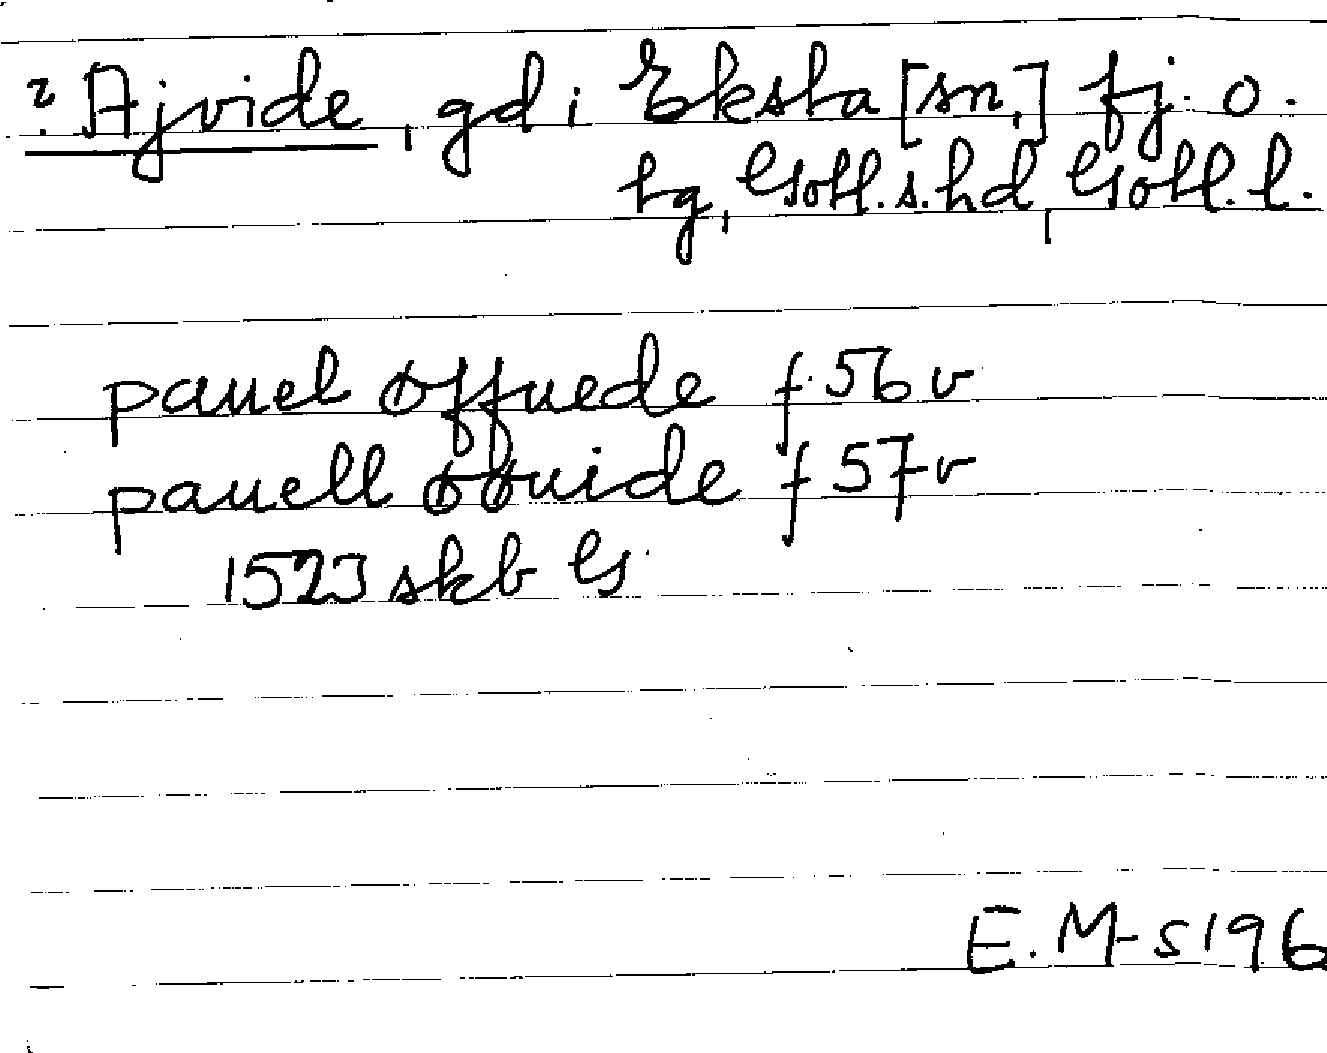 ? Ajvide, gd i Eksta [sn,] fj. o.
hg, Gotl. s. hd, Gotl. l.
pauel øffuede f. 56 v
pauell øffuide f 57 v
1523 skb G.
E. M-s 196